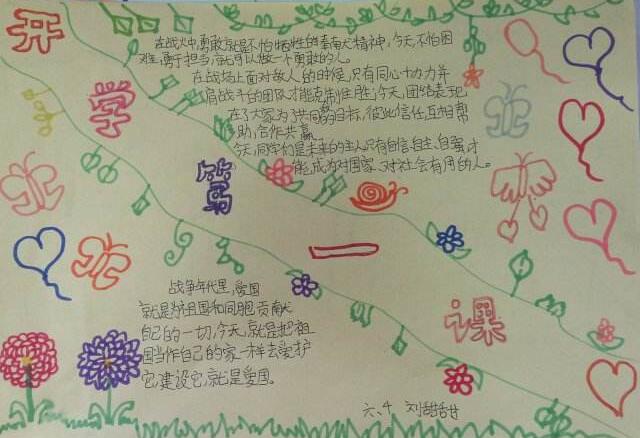 开
学
第
一
课
在战火中,勇敢就是不怕牺牲的奉献精神,今天,不怕困
难,勇于担当,就可以做一个勇敢的人。
在战场上面对敌人的时候,只有同心协力并
肩战斗的团队才能克制住胜;今天,团结表现
在了大家为了共同的目标,彼此信任,互相帮
助,合作共赢。
今天,同学们是未来的主人,只有自信、自主、自强才
能成为对国家、对社会有用的人。
战争年代里,爱国
就是为祖国和同胞贡献
自己的一切,今天,就是把祖
国当作自己的家一样去爱护
它,建设它,就是爱国。
六、4 刘甜甜